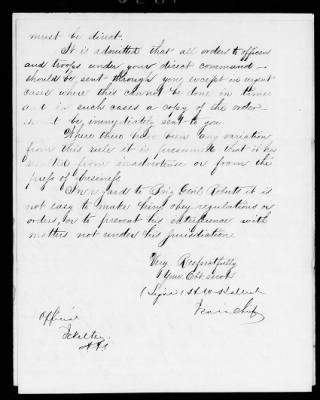 must be direct.
It is admitted that all orders to officers
and troops under your direct command
should be sent through you, except in urgent
cases where this cannot be done in time
and in such cases a copy of the order
should be immediately sent to you
Where there has been any variation
from this rule it is presumed that it has
resulted from inadvertence or from the
press of business
In regard to Brig Genl Roberts it is
not easy to make him obey regulations or
orders, or to prevent his interference with
matters not under his jurisdiction
Very Respectfully
Your Obt servt
(Signed) H W Halleck
Genl in Chief
Official